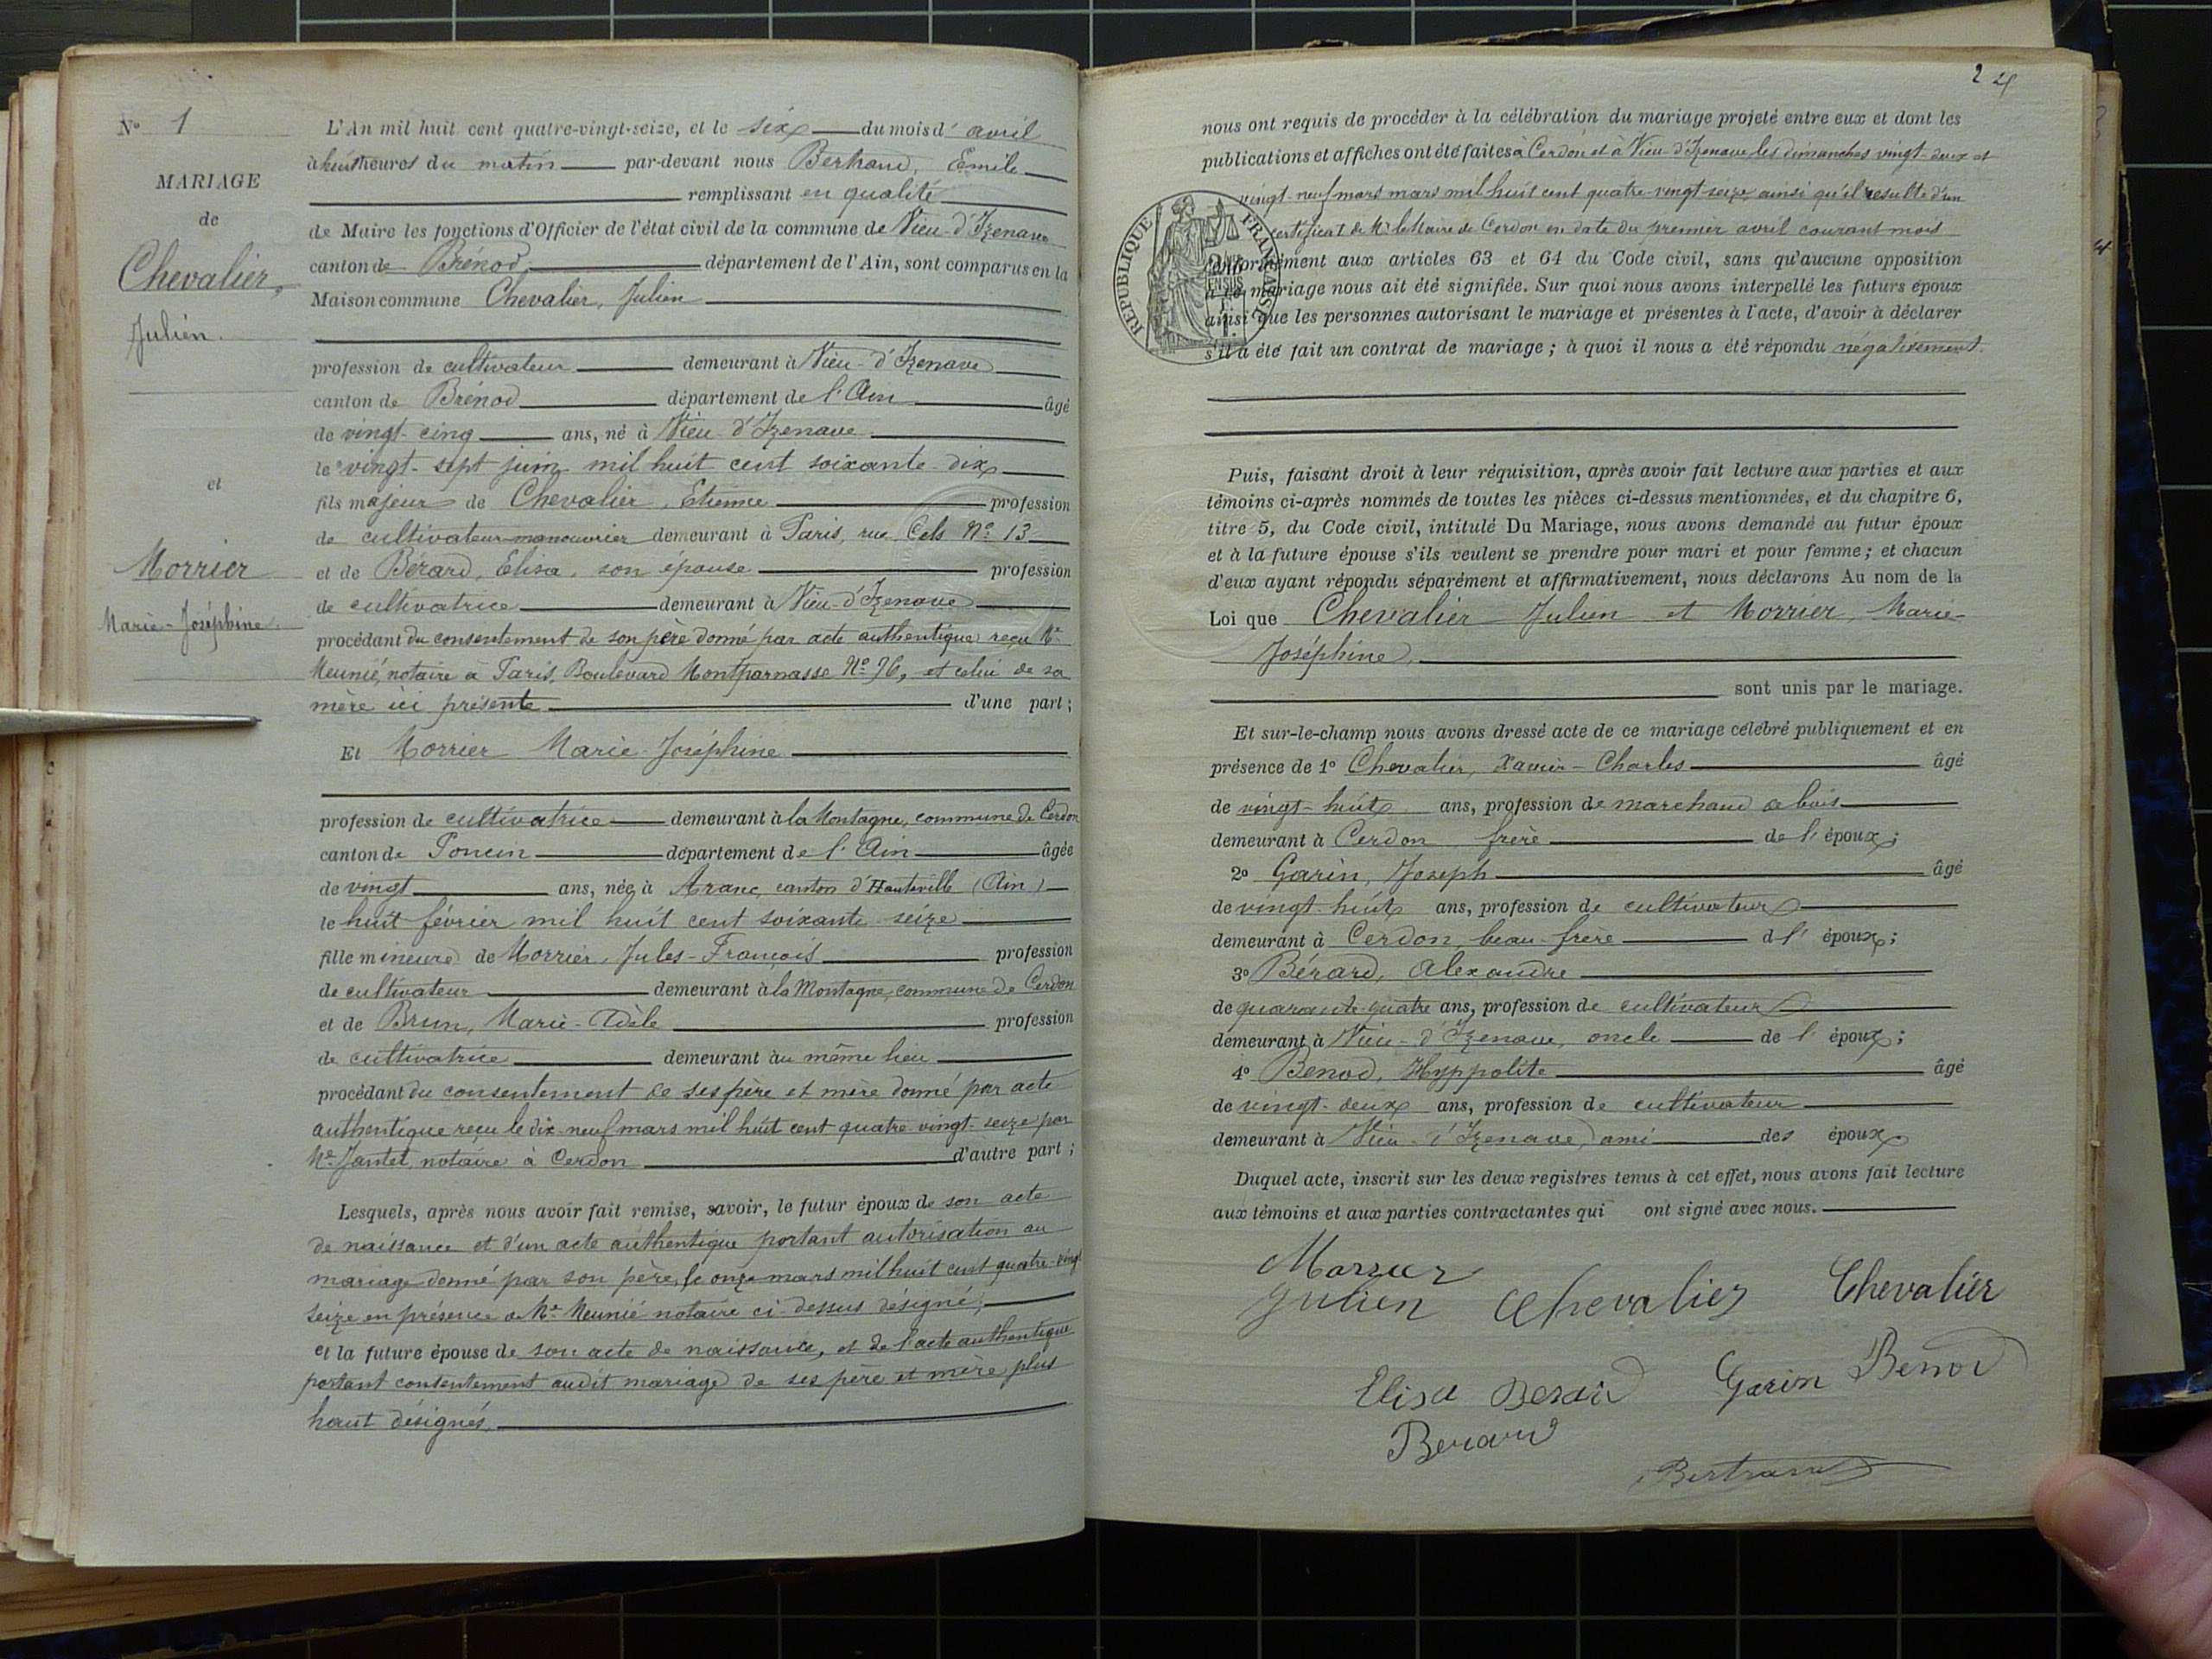 N° 1
MARIAGE
de
Chevalier,
Julien.
et
Morrier
Marie-Joséphine.
L'An mil huit cent quatre-vingt-seize, et le six du mois d'avril
à huit heures du matin par-devant nous Bertrand, Emile
remplissant en qualité
de Maire les fonctions d'Officier de l'état civil de la commune de Vieu-d'Izenave
canton de Brénod, département de l'Ain, sont comparus en la
Maison commune Chevalier, Julien
profession de cultivateur demeurant à Vieu-d'Izenave
canton de Brénod département de l'Ain âgé
de vingt-cinq ans, né à Vieu-d'Izenave
le vingt-sept juin mil huit cent soixante-dix
fils majeur de Chevalier, Etienne profession
de cultivateur-manouvrier demeurant à Paris, rue Cels N° 13
et de Bérard, Elisa, son épouse profession
de cultivatrice demeurant à Vieu-d'Izenave
procédant du consentement de son père donné par acte authentique reçu Me
Meunié, notaire à Paris, Boulevard Montparnasse N° 76, et celui de sa
mère ici présente d'une part ;
Et Morrier Marie-Joséphine
profession de cultivatrice demeurant à la Montagne, commune de Cerdon
canton de Poncin département de l'Ain âgée
de vingt ans, née à Aranc, canton d'Hauteville (Ain)
le huit février mil huit cent soixante-seize
fille mineure de Morrier, Jules-François profession
de cultivateur demeurant à la Montagne, commune de Cerdon
et de Brun, Marie-Adèle profession
de cultivatrice demeurant au même lieu
procédant du consentement de ses père et mère donné par acte
authentique reçu le dix-neuf mars mil huit cent quatre-vingt-seize par
Me Jantet, notaire à Cerdon d'autre part ;
Lesquels, après nous avoir fait remise, savoir, le futur époux de son acte
de naissance et d'un acte authentique portant autorisation au
mariage donné par son père, le onze mars mil huit cent quatre-vingt
seize en présence de Me Meunié notaire ci-dessus désigné ;
et la future épouse de son acte de naissance, et de l'acte authentique
portant consentement audit mariage de ses père et mère plus
haut désignés.
2
nous ont requis de procéder à la célébration du mariage projeté entre eux et dont les
publications et affiches ont été faites à Cerdon et à Vieu-d'Izenave les dimanches vingt-deux et
vingt-neuf mars mars mil huit cent quatre-vingt-seize, ainsi qu'il resulte d'un
certificat de Mr le Maire de Cerdon en date du premier avril courant mois
conformément aux articles 63 et 64 du Code civil, sans qu'aucune opposition
à ce mariage nous ait été signifiée. Sur quoi nous avons interpellé les futurs époux
ainsi que les personnes autorisant le mariage et présentes à l'acte, d'avoir à déclarer
s'il a été fait un contrat de mariage ; à quoi il nous a été répondu négativement.
RÉPUBLIQUE FRANÇAISE
Puis, faisant droit à leur réquisition, après avoir fait lecture aux parties et aux
témoins ci-après nommés de toutes les pièces ci-dessus mentionnées, et du chapitre 6,
titre 5, du Code civil, intitulé Du Mariage, nous avons demandé au futur époux
et à la future épouse s'ils veulent se prendre pour mari et pour femme ; et chacun
d'eux ayant répondu séparément et affirmativement, nous déclarons Au nom de la
Loi que Chevalier Julien et Morrier, Marie-
Joséphine,
sont unis par le mariage.
Et sur-le-champ nous avons dressé acte de ce mariage célébré publiquement et en
présence de 1° Chevalier, Xavier-Charles âgé
de vingt-huit ans, profession de marchand de bois
demeurant à Cerdon, frère de l'époux ;
2° Garin, Joseph âgé
de vingt-huit ans, profession de cultivateur
demeurant à Cerdon, beau-frère d l' époux ;
3° Bérard, Alexandre
de quarante-quatre ans, profession de cultivateur
demeurant à Vieu-d'Izenave, oncle de l'époux ;
4° Benod, Hyppolite âgé
de vingt-deux ans, profession de cultivateur
demeurant à Vieu-d'Izenave, ami des époux
Duquel acte, inscrit sur les deux registres tenus à cet effet, nous avons fait lecture
aux témoins et aux parties contractantes qui ont signé avec nous.
Morrier
Julien Chevalier Chevalier
Elisa Berard Garin Benod
Berard
Bertrand